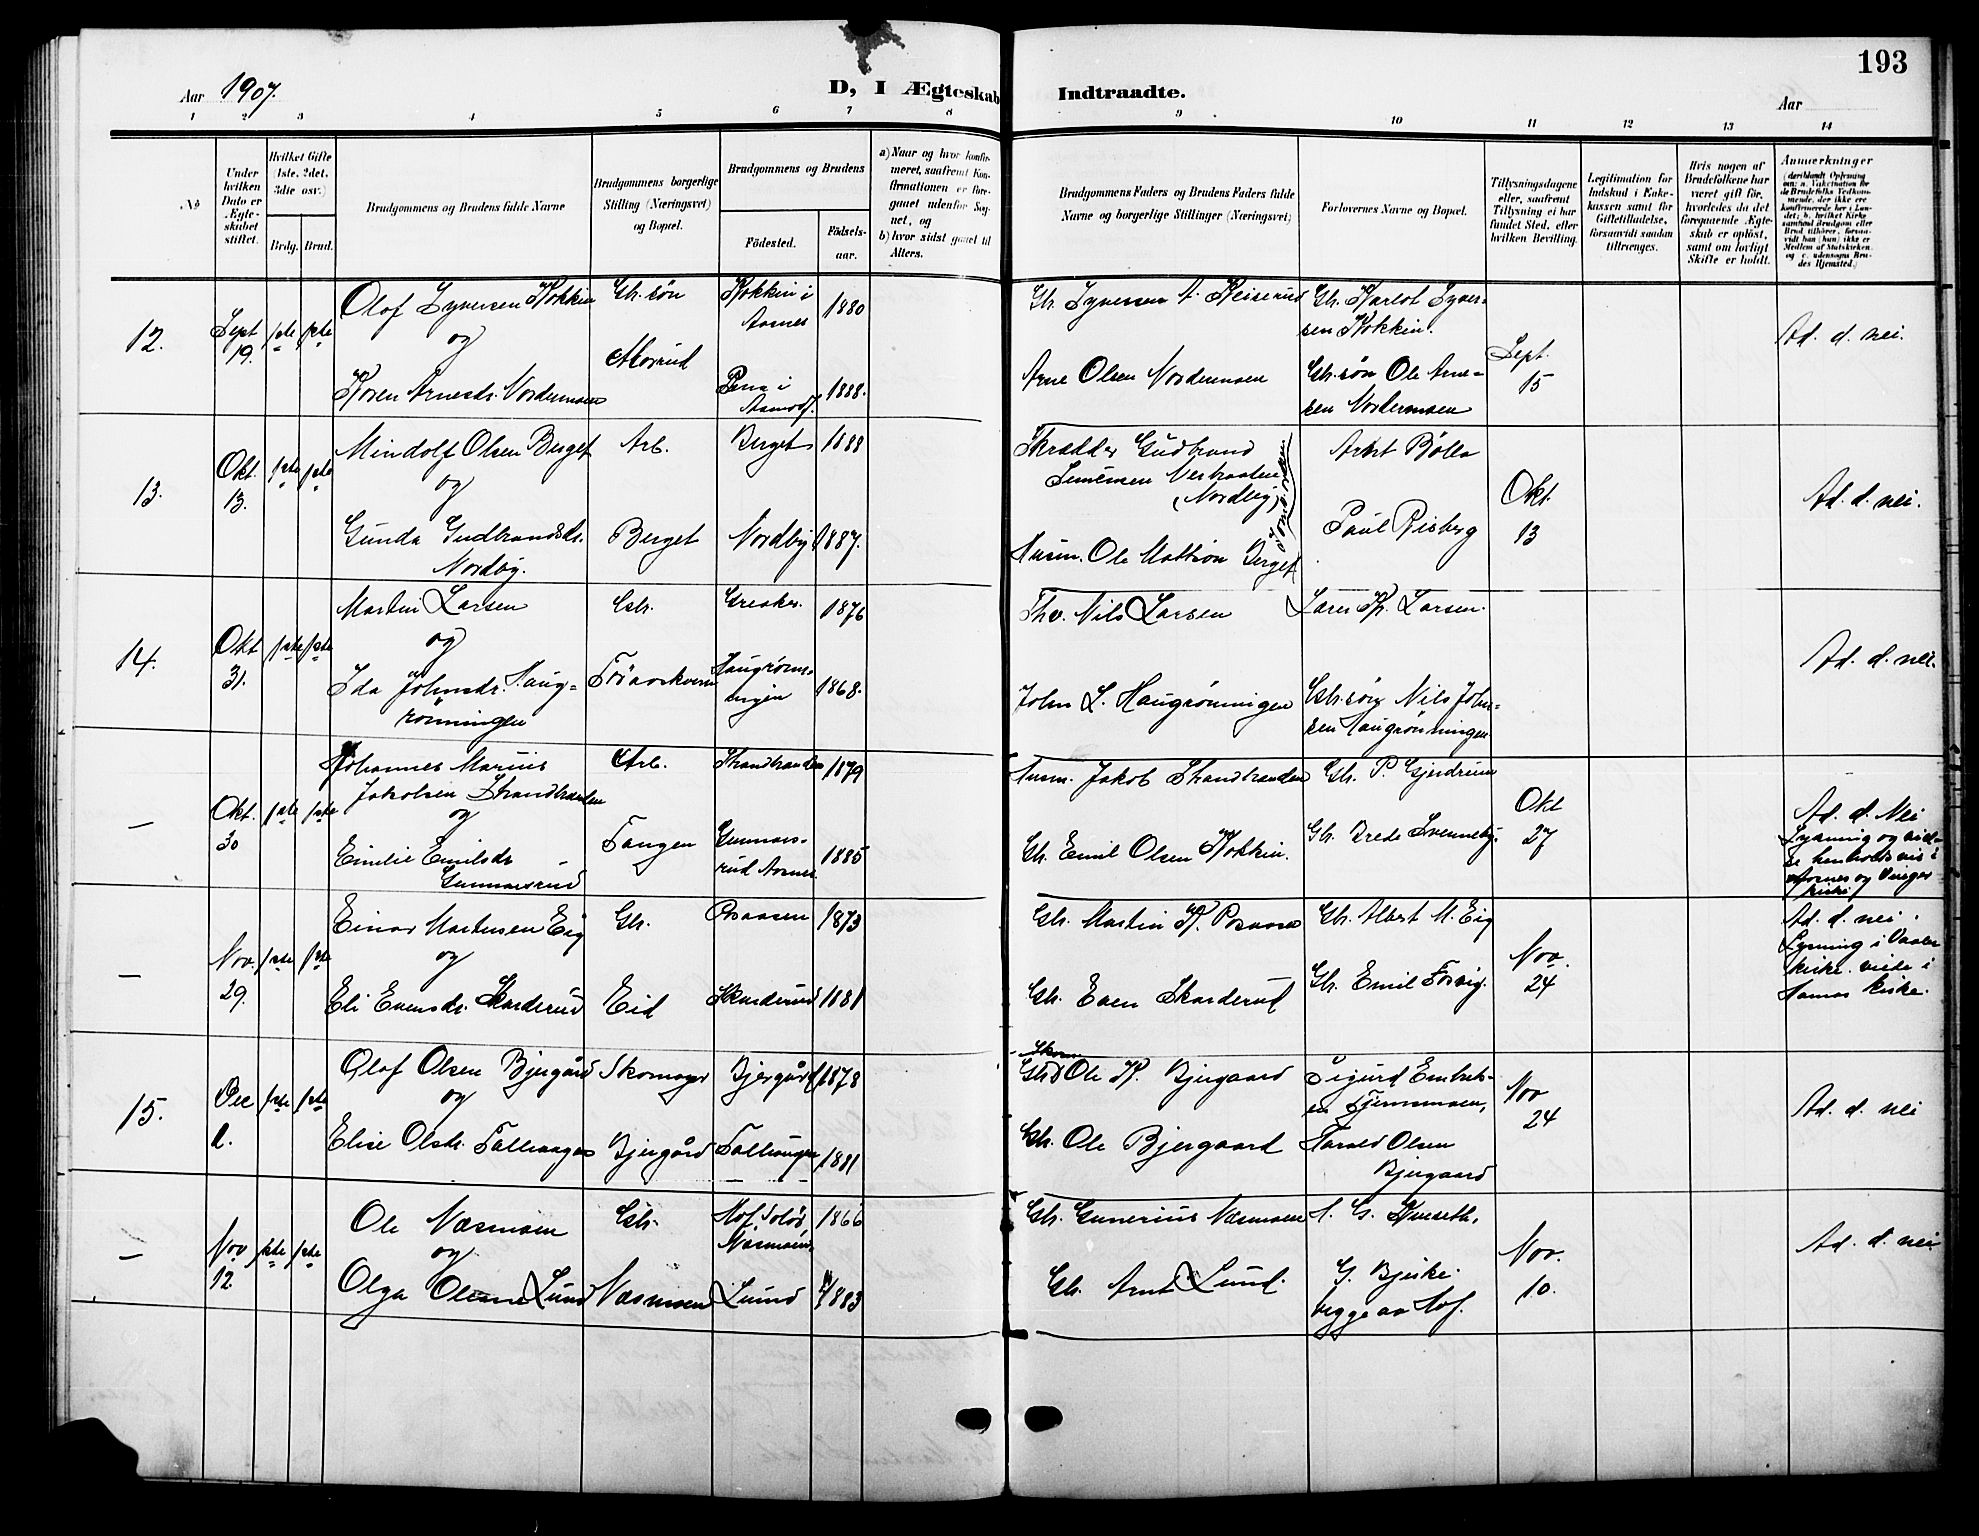 193
Aar 1907.
D, I Ægteskab Indtraadte.
Aar
1 2 3 4 5 6 7 8 9 10 11 12 13 14
No
Under hvilken Dato er Ægteskabet stiftet.
Hvilket Gifte (1ste, 2det, 3die osv.)
Brdg. Brud.
Brudgommens og Brudens fulde Navne
Brudgommens borgerlige Stilling (Næringsvei) og Bopæl.
Brudgommens og Brudens
Fødested.
Fødsels-aar.
a) Naar og hvor konfirmeret, saafremt Konfirmationen er foregaaet udenfor Sognet, og
b) hvor sidst gaaet til Alters.
Brudgommens Faders og Brudens Faders fulde
Navne og borgerlige Stillinger (Næringsvei)
Forlovernes Navne og Bopæl.
Tillysningsdagene eller, saafremt Tillysning ei har fundet Sted, efter hvilken Bevilling.
Legitimation for Indskud i Enkekassen samt for Giftetilladelse, forsaavidt saadan tiltrænges.
Hvis nogen af Brudefolkene har været gift før, hvorledes da det foregaaende Ægteskab er opløst, samt om lovligt Skifte er holdt.
Anmerkninger
12.
Sept 19.
1ste 1ste
Olaf Syversen Kokkin
og
Karen Arnesdr. Nordermoen
Gbr. søn
Morrud
Kokkin i Aasnes
1880
1888.
Gbr. Syversen A. Keiserud
Arne Olsen Nordermoen
Gbr. Karlot Syversen Kokkin.
Gbr. søn Ole Arnesen Nordermoen
Sept. 15
Ad. d. nei.
13.
Okt. 13.
1ste 1ste
Mindolf Olsen Berget
og
Gunda Gudbrandsdr.
Nordby.
Arb.
Berget
Berget
Nordby
1888
1887.
Skrædder Gudbrand
Simensen
(Nordby)
Husm. Ole Mattison Berget
Arnt Bølla
Paul Risberg
Okt 13
Ad. d. nei.
14.
Okt 31.
1ste 1ste
Martin Larsen
og
Ida Johnsdr. Haug-
rønningen
Gbr.
Haugrøns-
engen
1876
1868.
Nils Larsen
John L. Haugrønningen
Lars Kr. Larsen.
Gbr. søn Nils John-
sen Haugrønningen
Ad. d. nei.
—
Okt. 30
1ste 1ste
Johannes Marius
Jakobsen Strandbraaten
og
Emilie Emilsdr
Gunnarsrud
Arb.
Tangen
Gunnars-
rud Aasnes.
1879
1885
Husm. Jakob Strandbraaten
Gbr. Emil Olsen Kokkin.
Gbr. P. Gjerdrum
Gbr. Brede Svenneby.
Okt 27
Ad. d. Nei
Lysning og viel-
se henholdsvis i
Aasnes og Vinger
kirke
—
Nov. 29.
1ste 1ste
Einar Martinsen Eig
og
Eli Evensdr. Skarderud
Gbr.
Eid
Posaasen
Skarderud
1873
1881
Gbr. Martin K. Posaasen
Gbr. Even Skarderud
Gbr. Albert M. Eig
Gbr. Emil Forvig.
Nov. 24
Ad. d. nei.
Lysning i Vaaler
kirke. viede i
Hamar kirke.
15.
Dec 1.
1ste 1ste
Olaf Olsen Bjergård
og
Elise Olsdr. Fallvangen
Skomager
Bjergård
Bjergård
Fallvangen
1878
1881
Ole K. Bjergaard
Gbr. Ole Bjergaard
Sigurd Embret-
sen Tjernsmoen,
Harald Olsen
Bjergaard
Nov 24
Ad. d. nei
—
Nov 12.
1ste 1ste
Ole Næsmoen
og
Olga Olsen Lund
Gbr.
Næsmoen
Hof Solør
Næsmoen
Lund
1866
1883
Gbr. Gunerius Næsmoen
Gbr. Arnt Lund.
A. G. Kveseth,
G. Bjerke.
begge av Hof.
Nov. 10.
Ad. d. nei